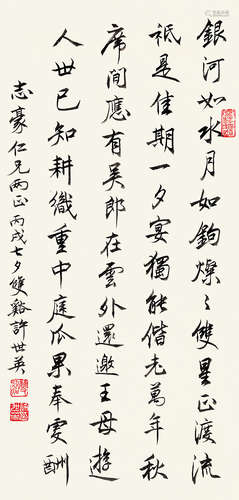 銀河如水月如鉤燦〻雙星正渡流
祗是佳期一夕宴獨能偕老萬年秋
席間應有吳郎在雲外還邀王母遊
人世已知耕織重中庭瓜果奉雯酬
志豪仁兄兩正丙戌七夕雙谿許世英